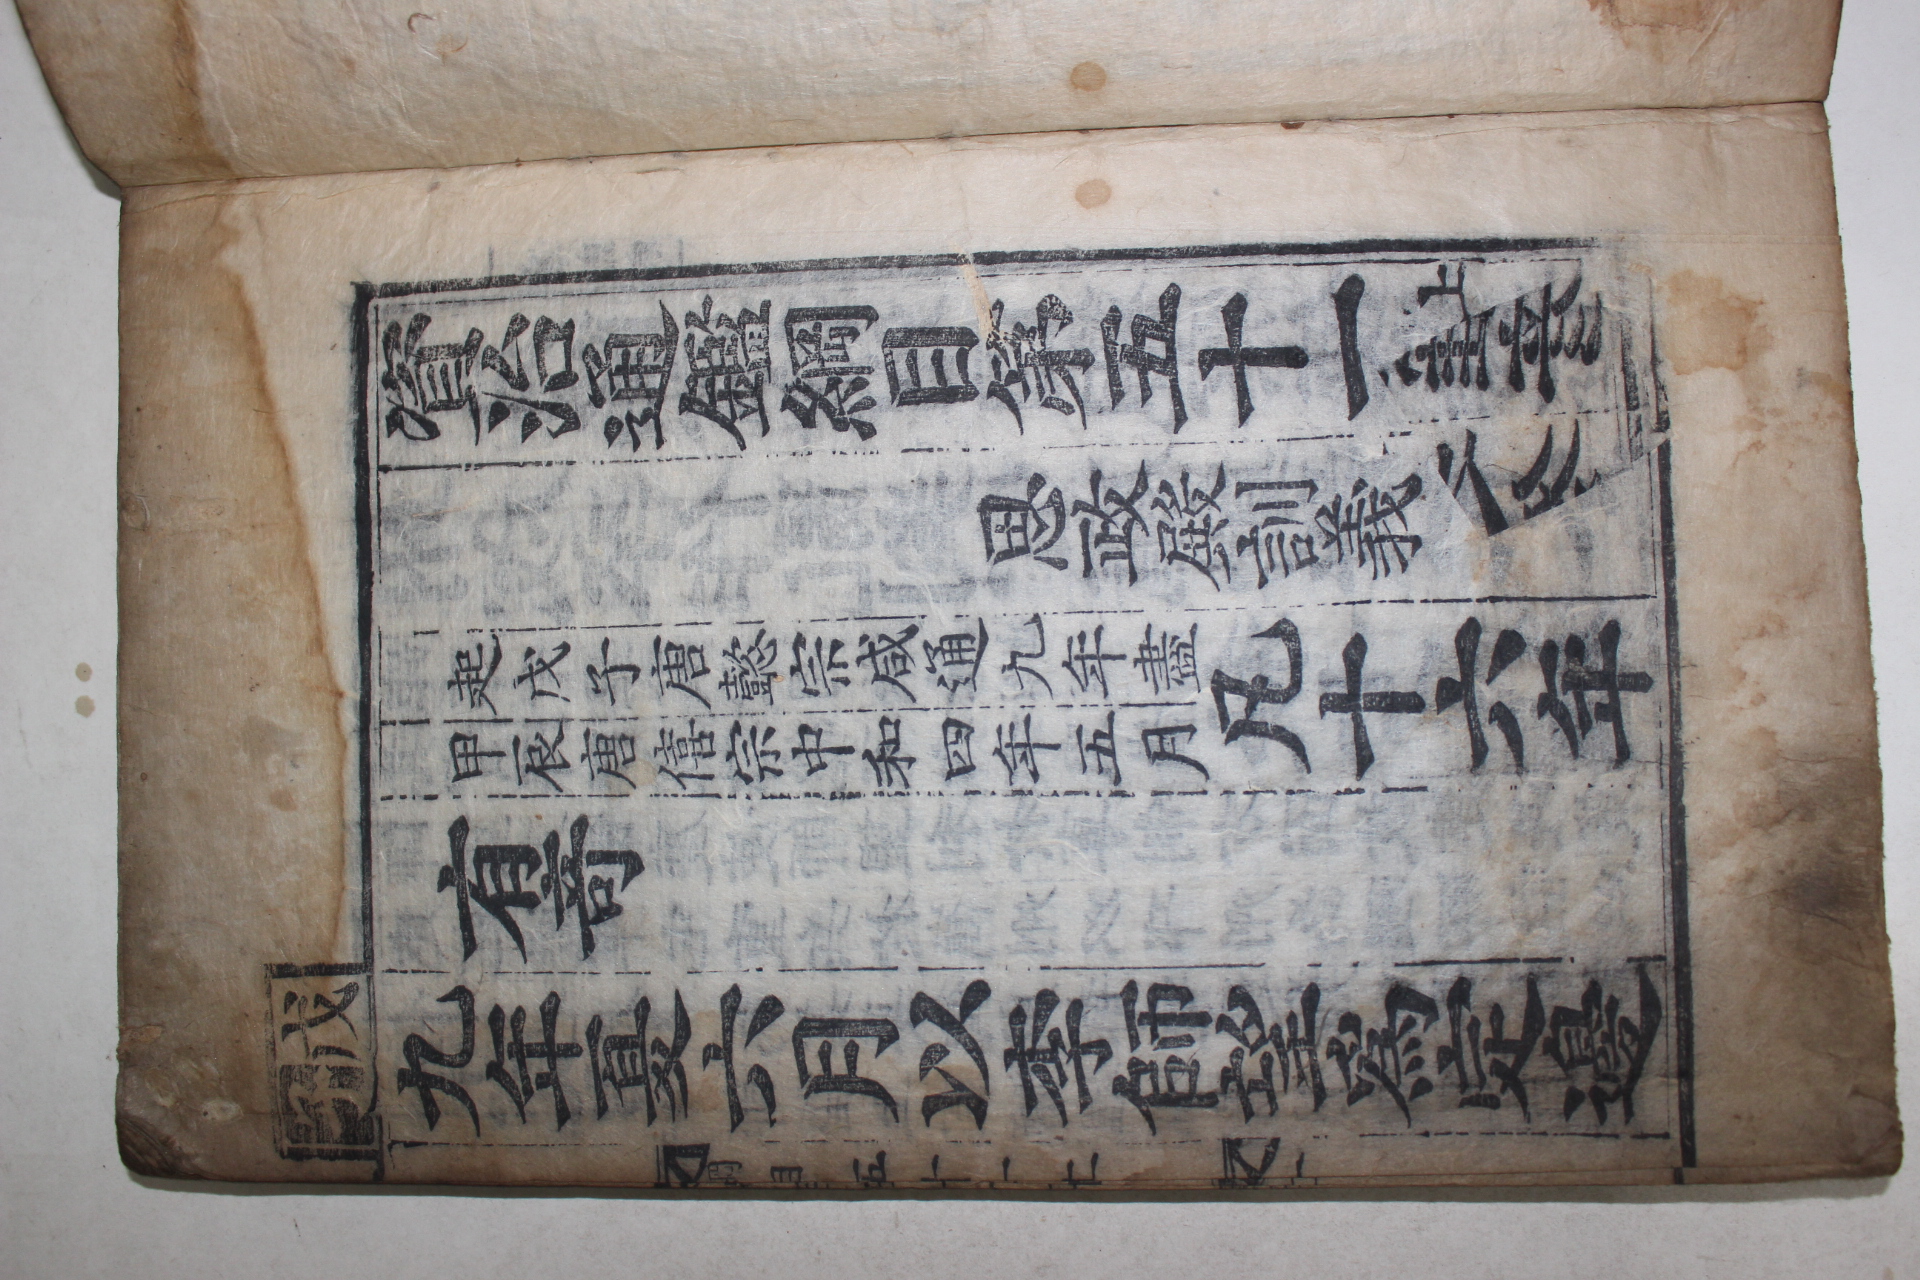 資治通鑑綱目第五十一上
思政殿訓義
起戊子唐懿宗咸通九年盡
甲辰唐僖宗中和四年五月
凡十六年
有奇
戊子
九年夏六月以李師望為定邊